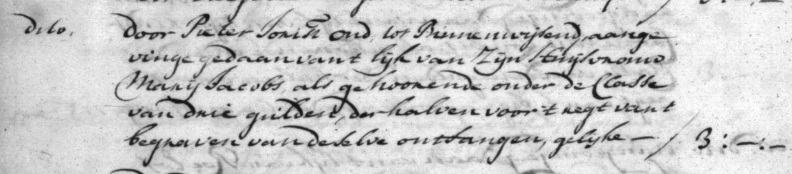 dito. door Pieter Jonisz Oud, tot Binnenwijsend, aange
vinge gedaan vant lijk van Zijn Huijsvrouw
Marij Jacobs, als gehoorende onder de Classe
van drie gulden, derhalven voor 't regt vant
begraven van deselve ontfangen, gelijke — / 3:—:—